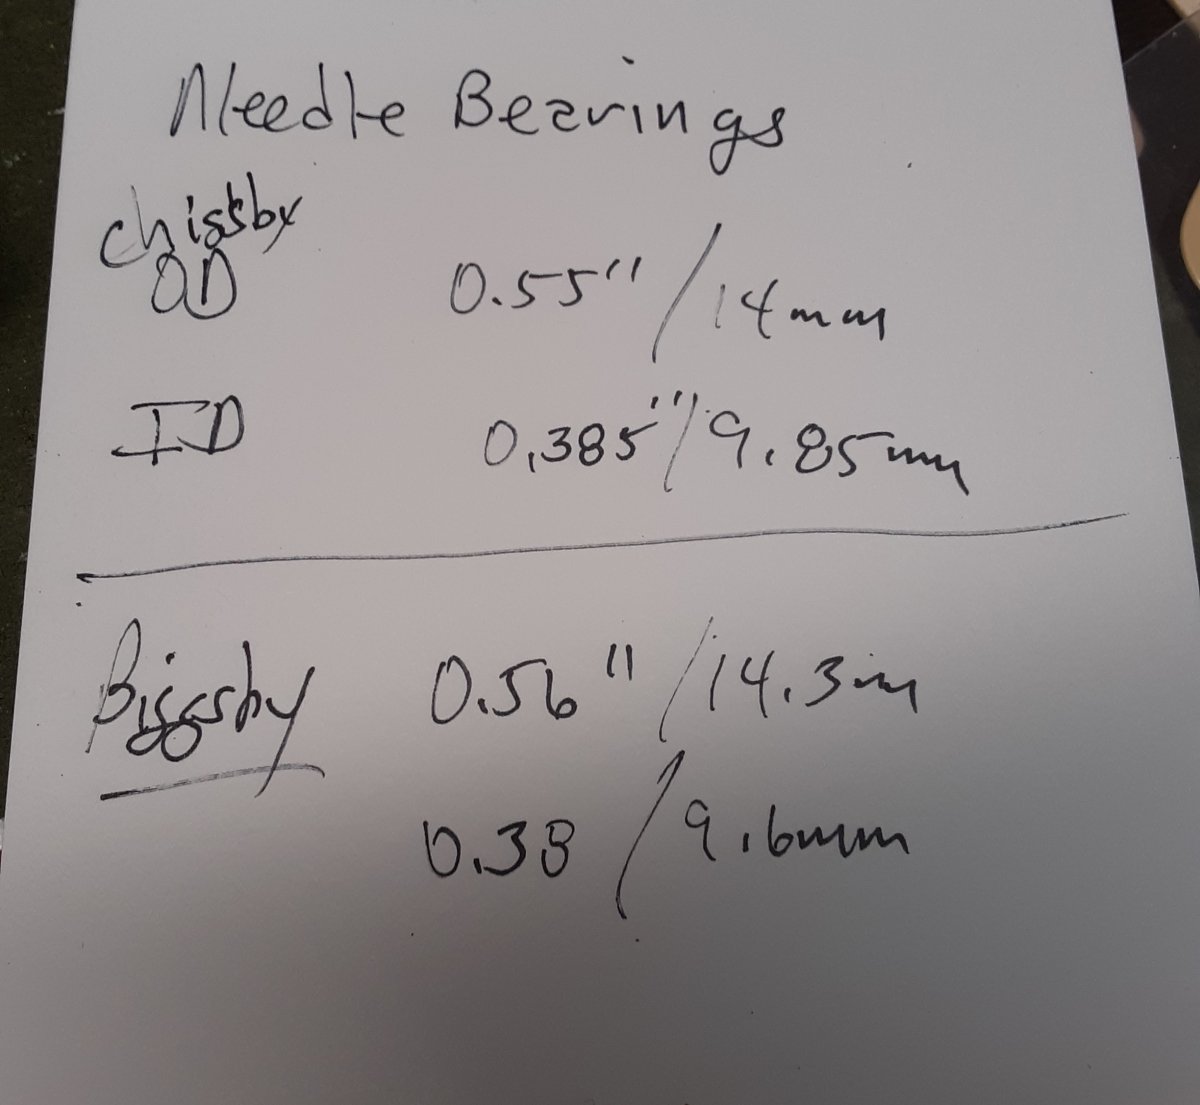 Needle Bearings
Chissby
OD 0.55" / 14mm
ID 0.385" / 9.85mm
Biggsby 0.56" / 14.3m
0.38 / 9.6mm